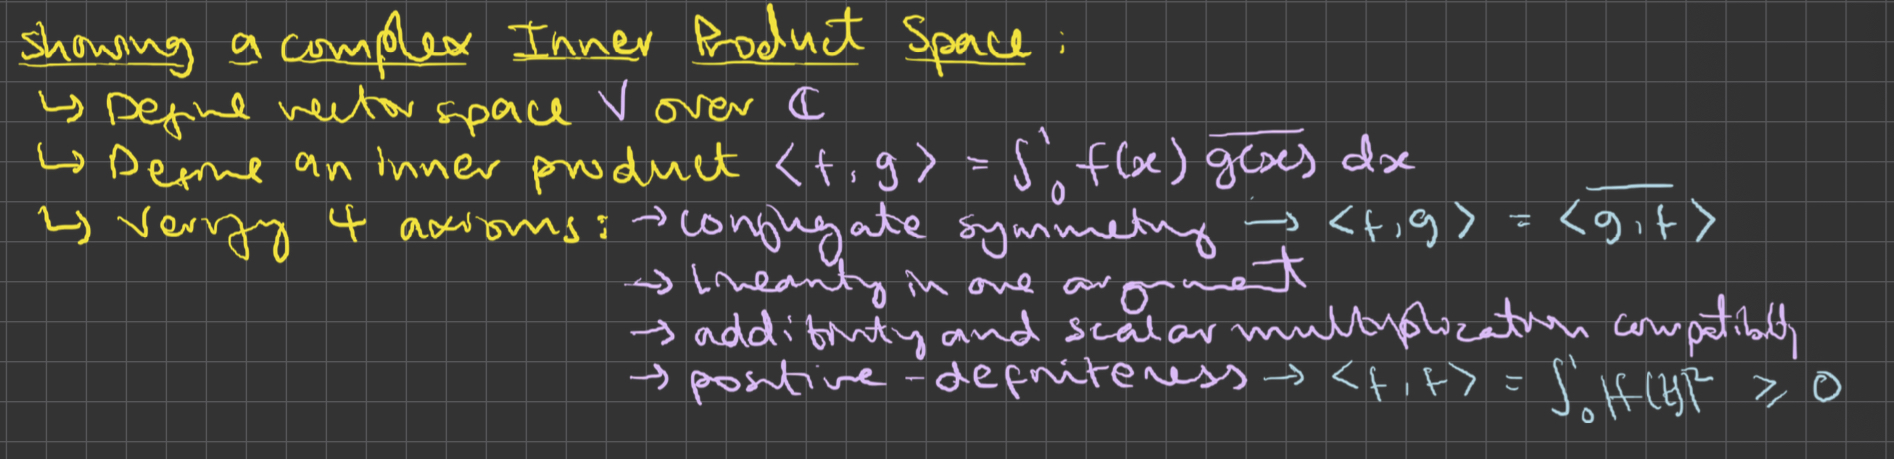 Showing a complex Inner Product Space:
↳ Define vector space V over ℂ
↳ Define an inner product <f, g> = ∫₀¹ f(x) \overline{g(x)} dx
↳ Verify 4 axioms: → conjugate symmetry → <f, g> = \overline{<g, f>}
→ Linearity in one argument
→ additivity and scalar multiplication compatibility
→ positive-definiteness → <f, f> = ∫₀¹ |f(t)|² ≥ 0